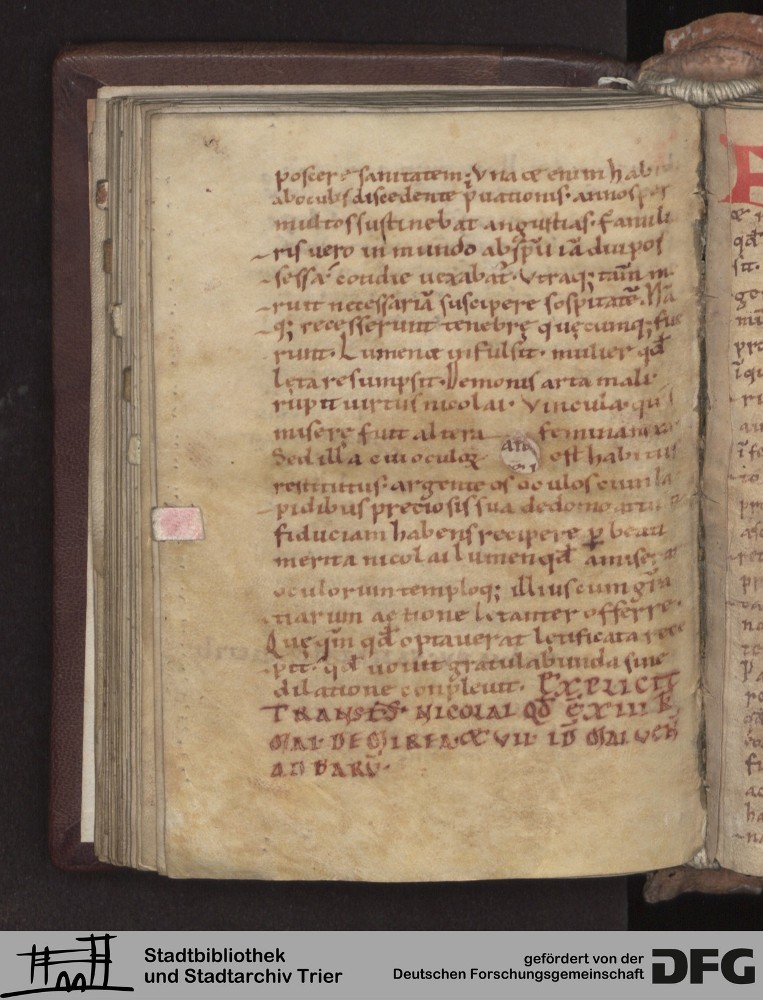 poscere sanitatem; Una & enim hab
ab oculis discedente p̄uationis. annos per
multos sustinebat angustias. famuli
ris uero in mundo ab sp̄u iā diu pos
sessa cotidie uexabat̄. Utraq; tam̄
runt necessariā suscipere sospitatē. Nā
q; recesserunt tenebrę quęcumq; fue
runt. Lumen & infulsit. mulier qd̄
lęta resumpsit. Demonis arta mali.
rupit uirtus nicolai. Vincula. quę
miserę fuit altera feminam
Sed illa cui oculoꝝ est habitus
restitutus. argenteos oculos cum la
pidibus preciosis sua de domo
fiduciam habens recipere p̱ beati
merita nicolai lumen qd̄ amiserat
oculorum temploq; illius cum grā
tiarum actione lętanter offerre.
Quę qm̄ qd̄ optauerat lętificata rece
pit. qd̄ uouit gratulabunda sine
dilatione conpleuit. EXPLICIT
TRANSIT S. NICOLAI QD̄ E XIII K
MAI DE MIREA. & VII ID MAI VEN
AD BARŪ.
qd̄
Stadtbibliothek
und Stadtarchiv Trier
gefördert von der
Deutschen Forschungsgemeinschaft
DFG